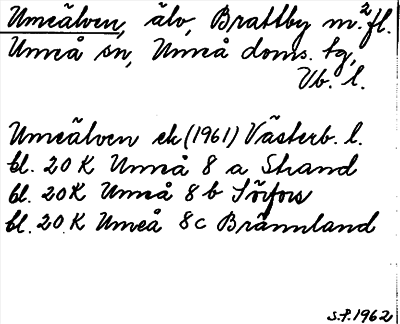 Umeälven, älv, Brattby m.fl.²
Umeå sn, Umeå doms. tg,
Vb. l.
Umeälven ek (1961) Västerb. l.
bl. 20 K Umeå 8 a Strand
bl. 20 K Umeå 8 b Sörfors
bl. 20 K Umeå 8 c Brännland
S.P. 1962